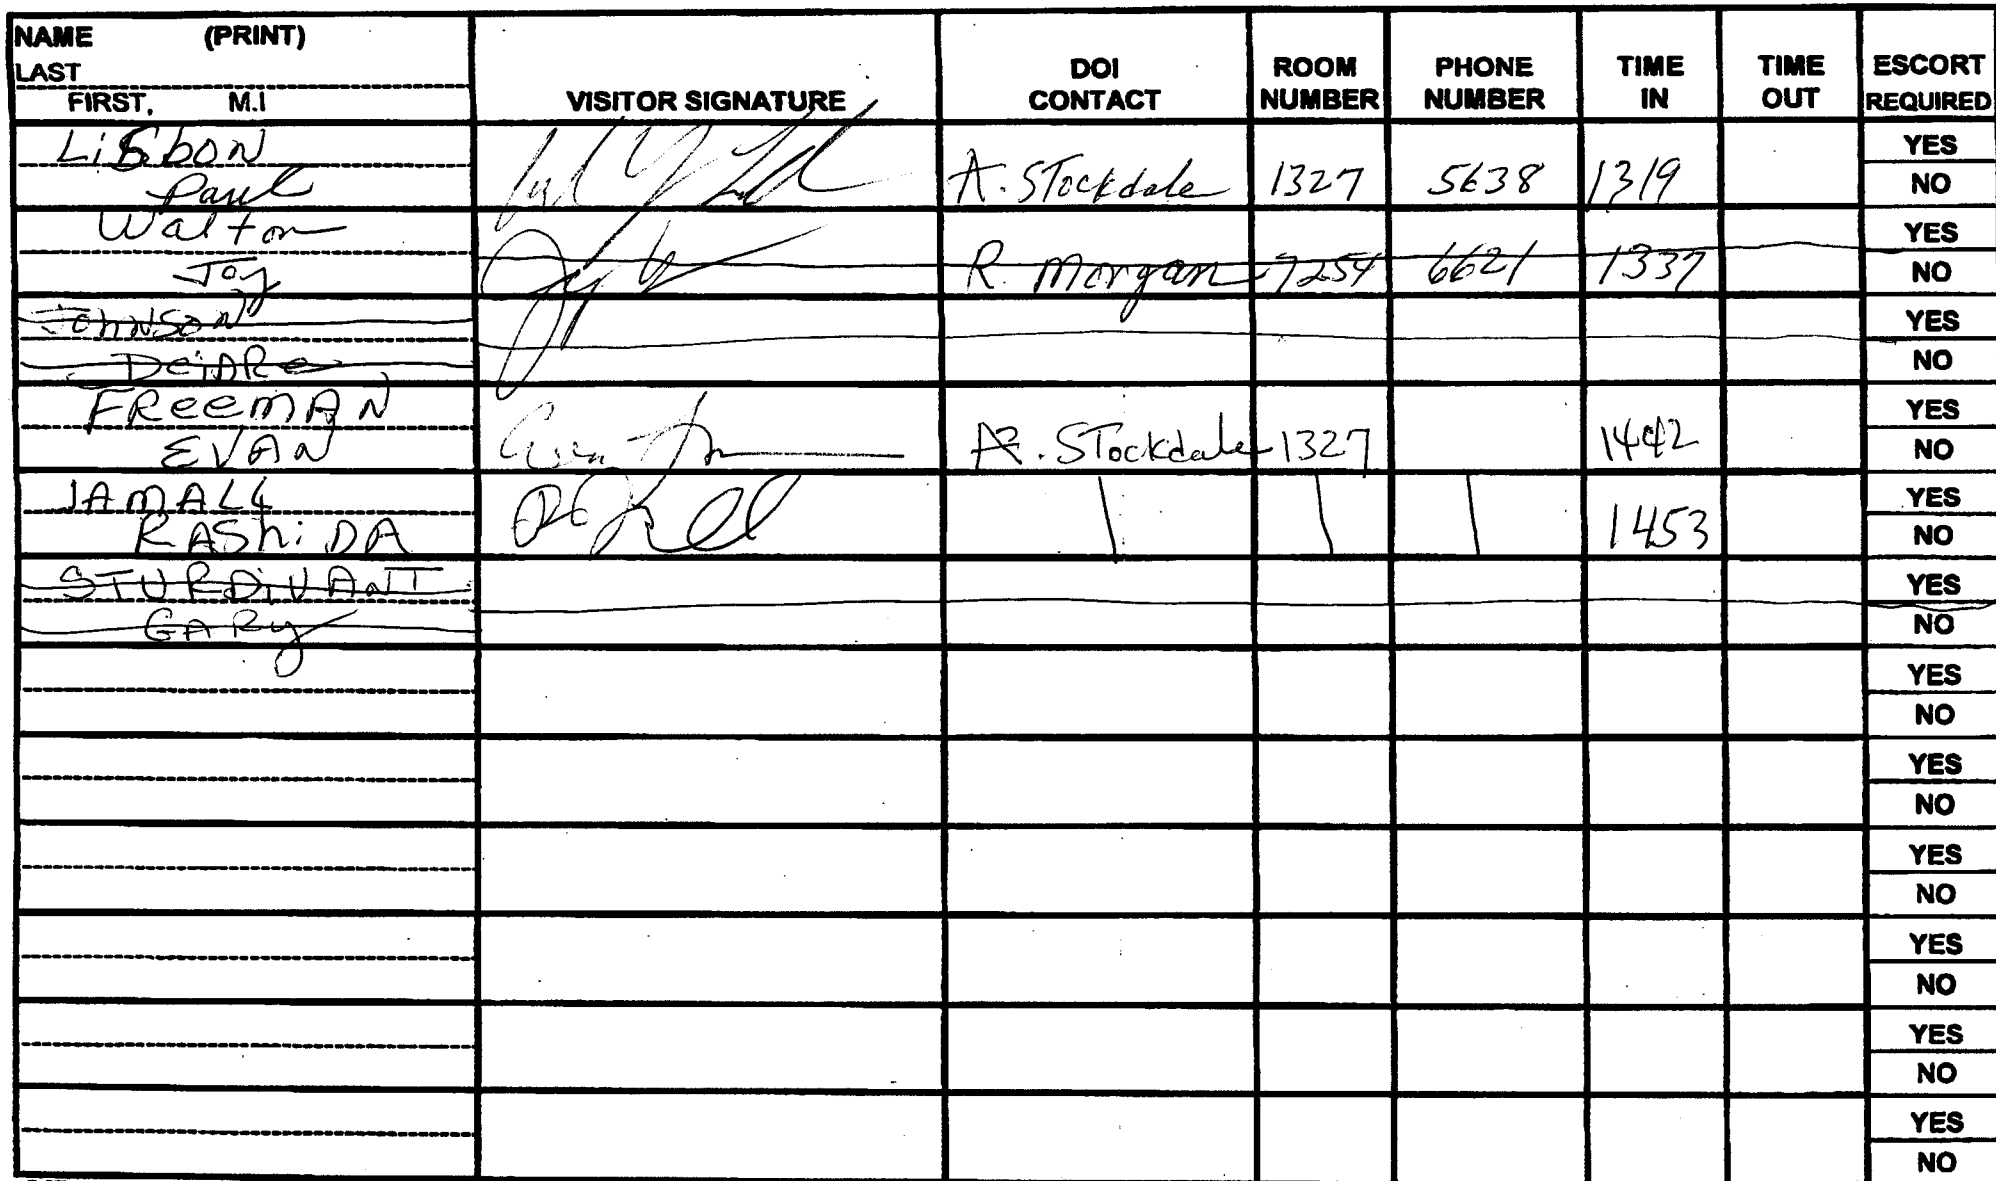 NAME (PRINT)
LAST
FIRST, M.I
VISITOR SIGNATURE
DOI
CONTACT
ROOM
NUMBER
PHONE
NUMBER
TIME
IN
TIME
OUT
ESCORT
REQUIRED
Lisbon
Paul
A. Stockdale 1327 5638 1319
YES
NO
Walton
Joy
R. Morgan 7254 6621 1337
YES
NO
Johnson
DeiDRe
YES
NO
FReemAN
EVAN
A. Stockdale 1327 1442
YES
NO
JAMALL
RAShiDA
1453
YES
NO
STURDiVANT
GARy
YES
NO
YES
NO
YES
NO
YES
NO
YES
NO
YES
NO
YES
NO